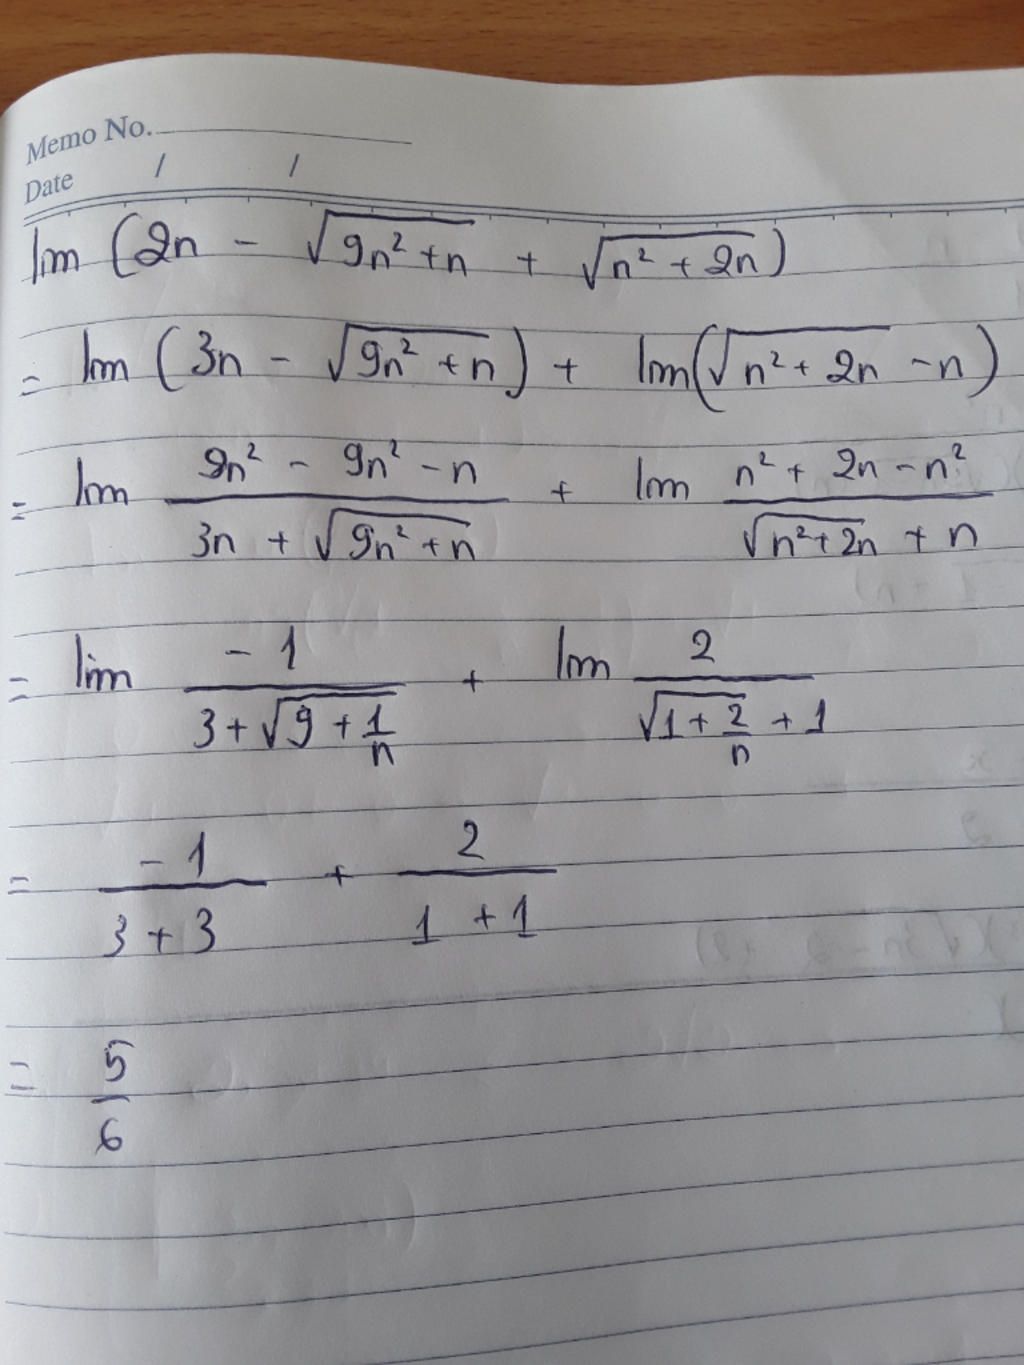 Memo No.
Date / /
lim (2n - √(9n² + n) + √(n² + 2n))
= lim (3n - √(9n² + n)) + lim(√(n² + 2n) - n)
= lim (9n² - 9n² - n)/(3n + √(9n² + n)) + lim (n² + 2n - n²)/(√(n² + 2n) + n)
= lim (-1)/(3 + √(9 + 1/n)) + lim 2/(√(1 + 2/n) + 1)
= (-1)/(3 + 3) + 2/(1 + 1)
= 5/6